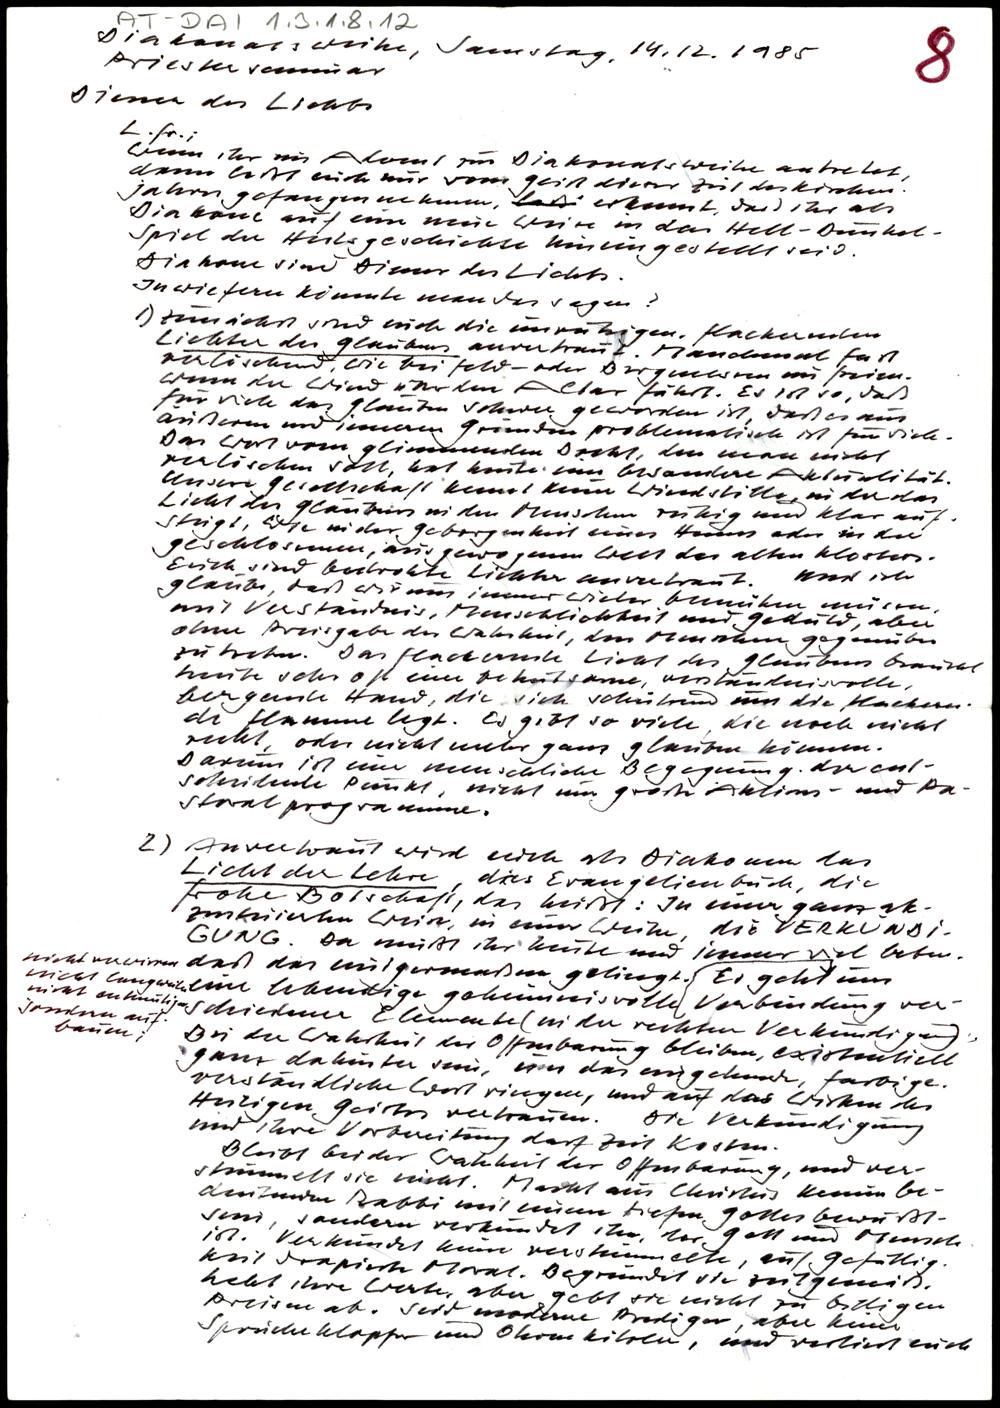 AT-DAI 1.3.1.8.12
8
Diakonatsweihe, Samstag, 14.12.1985
Priesterseminar
Diener des Lichts
L. Fr.;
Wenn ihr im Advent zur Diakonatsweihe antretet,
dann laßt euch nur vom Geist dieser Zeit des Kirchen-
jahres gefangennehmen, erkennt, daß ihr als
Diakone auf eine neue Weise in das Hell-Dunkel-
Spiel der Heilsgeschichte hineingestellt seid.
Diakone sind Diener des Lichts.
Inwiefern könnte man das sagen?
1) Zunächst sind euch die unruhigen, flackernden
Lichter des Glaubens anvertraut. Manchmal fast
verlöschend, wie bei Feld- oder Bergmessen im Freien,
wenn der Wind über den Altar fährt. Es ist so, daß
für viele das Glauben schwer geworden ist, daß es aus
äußeren und inneren Gründen problematisch ist für sie.
Das Wort vom glimmenden Docht, den man nicht
verlöschen soll, hat heute eine besondere Aktualität.
Unsere Gesellschaft kennt keine Windstille, in der das
Licht des Glaubens in den Menschen ruhig und klar auf-
steigt, wie in der Geborgenheit eines Hauses oder in der
geschlossenen, ausgewogenen Welt des alten Klosters.
Euch sind bedrohte Lichter anvertraut. Und ich
glaube, daß wir uns immer wieder bemühen müssen,
mit Verständnis, Menschlichkeit und Geduld, aber
ohne Preisgabe der Wahrheit, den Menschen gegenüber
zu treten. Das flackernde Licht des Glaubens braucht
heute sehr oft eine behutsame, verständnisvolle,
bergende Hand, die sich schützend um die flackern-
de Flamme legt. Es gibt so viele, die noch nicht
recht, oder nicht mehr ganz glauben können.
Darum ist eine menschliche Begegnung der ent-
scheidende Punkt, nicht nur große Aktions- und Pa-
storalprogramme.
2) Anvertraut wird euch als Diakonen das
Licht der Lehre, dies Evangelienbuch, die
frohe Botschaft, das heißt: In einer ganz ak-
zentuierten Weise, in einer Weihe, die VERKÜNDI-
GUNG. Da müßt ihr heute und immer viel beten,
daß das einigermaßen gelingt. Es geht um
eine lebendige geheimnisvolle Verbindung ver-
schiedener Elemente (in der rechten Verkündigung):
nicht verwirren
nicht langweilen
nicht entmutigen
sondern auf-
bauen!
Bei der Wahrheit der Offenbarung bleiben, existentiell
ganz dahinter sein, um das eingehende, farbige,
verständliche Wort ringen, und auf das Wirken des
Heiligen Geistes vertrauen. Die Verkündigung
und ihre Vorbereitung darf Zeit kosten.
Bleibt bei der Wahrheit der Offenbarung, und ver-
stümmelt sie nicht. Macht aus Christus keinen be-
deutenden Rabbi mit einem tiefen Gottesbewußt-
sein, sondern verkündet ihn, der Gott und Mensch
ist. Verkündet keine verstümmelte, auf Gefällig-
keit drapierte Moral. Begründet sie zeitgemäß,
hebt ihre Werte, aber gebt sie nicht zu billigen
Preisen ab. Seid moderne Prediger, aber keine
Sprücheklopfer und Ohrenkitzler, und verliert euch